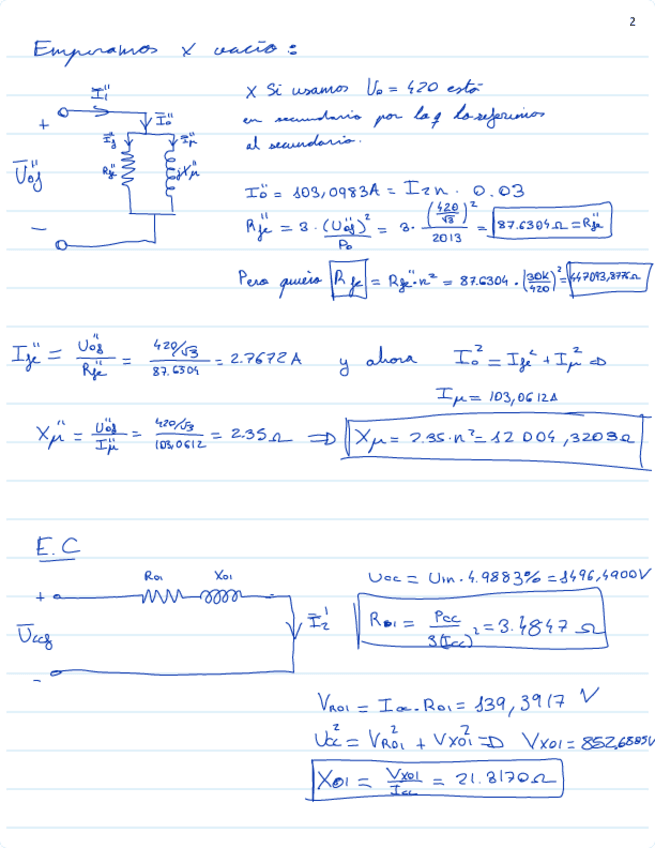 2
Empezamos x vacío :
x Si usamos U₀ = 420 está
en secundario por lo q lo referimos
al secundario.
I₁''
+
I₀''
I_f''
I_μ''
U₀f''
R_fe''
jX_μ''
−
I₀'' = 103,0983A = I₂n · 0.03
R_fe'' = 3 · (U₀f'')² / P₀ = 3 · (420/√3)² / 2013 = 87.6304 Ω = R_fe''
Pero quiero R_fe = R_fe'' · n² = 87.6304 · (30K/420)² = 447093,8776 Ω
I_fe'' = U₀f'' / R_fe'' = 420/√3 / 87.6304 = 2.7672 A y ahora I₀² = I_fe² + I_μ² ⇒
I_μ = 103,0612A
X_μ'' = U₀f'' / I_μ'' = 420/√3 / 103,0612 = 2.35 Ω ⇒ X_μ = 2.35 · n² = 12 004,3203 Ω
E.C
R₀₁ X₀₁
+
I₂'
U_ccf
−
U_cc = U₁n · 4.9883% = 1496,4900V
R₀₁ = P_cc / 3(I_cc)² = 3.4847 Ω
V_R01 = I_cc · R₀₁ = 139,3917 V
U_cc² = V_R01² + V_X01² ⇒ V_X01 = 852,6585V
X₀₁ = V_X01 / I_cc = 21.8170 Ω